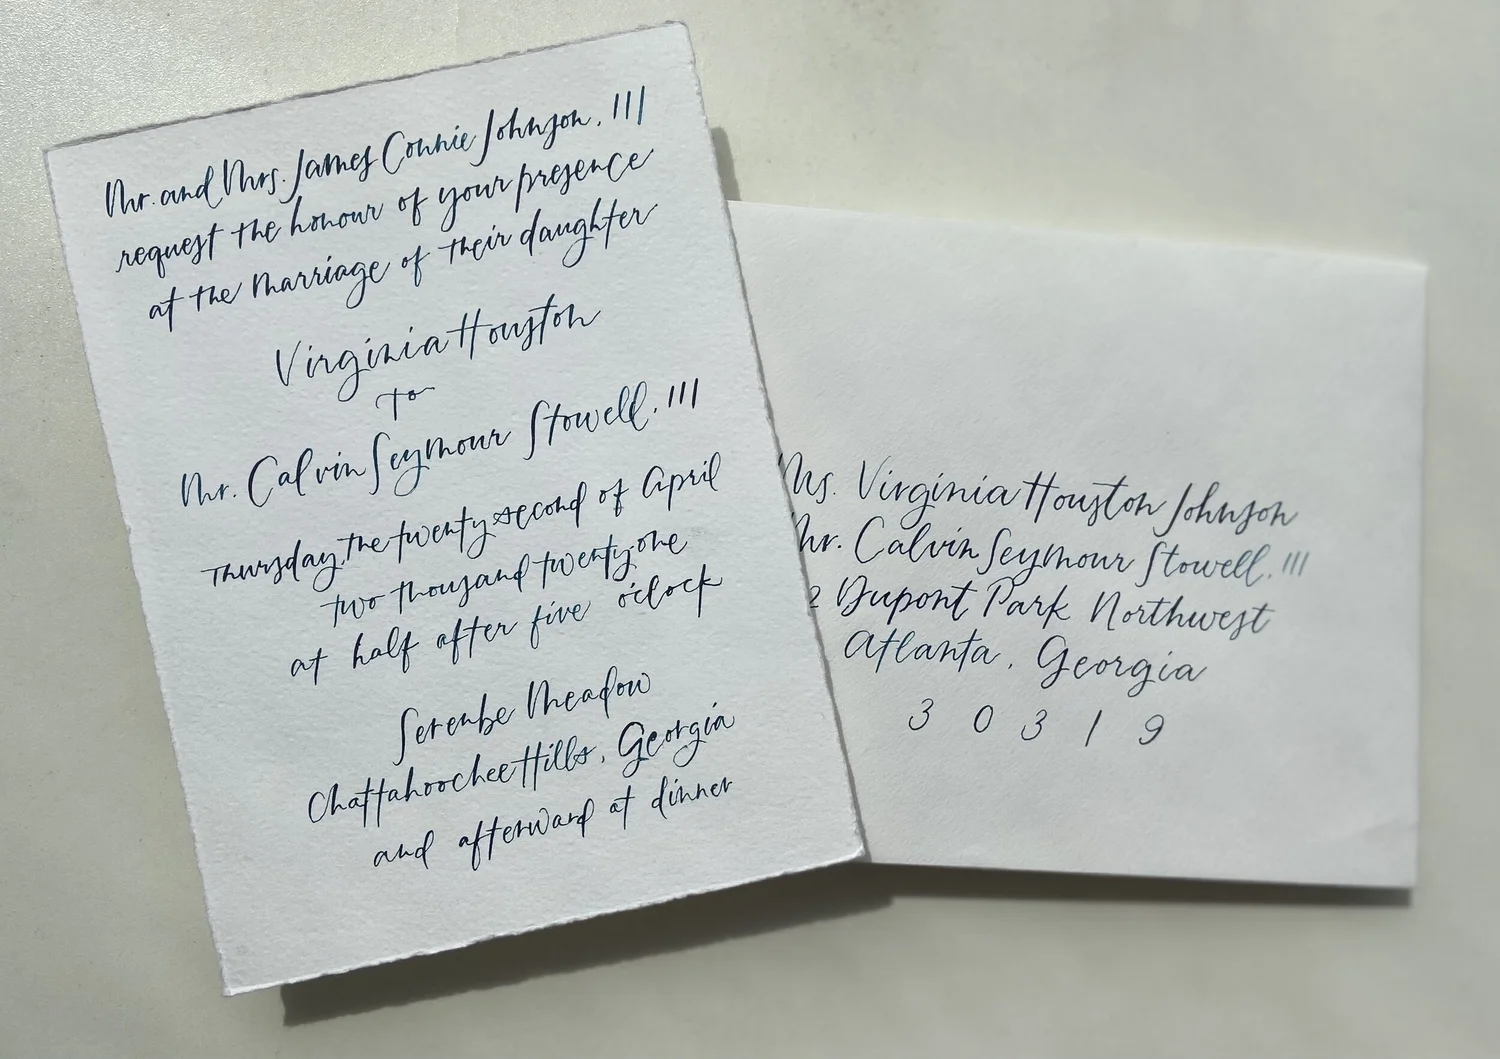 Mr. and Mrs. James Connie Johnson, III
request the honour of your presence
at the marriage of their daughter
Virginia Houston
to
Mr. Calvin Seymour Stowell, III
Thursday, the twenty second of April
two thousand twenty-one
at half after five o'clock
Serenbe Meadow
Chattahoochee Hills, Georgia
and afterward at dinner
Ms. Virginia Houston Johnson
Mr. Calvin Seymour Stowell, III
2 Dupont Park Northwest
Atlanta, Georgia
3 0 3 1 9